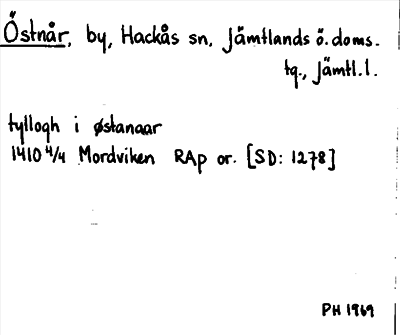 Östnår, by, Hackås sn, Jämtlands ö. doms.
tg., Jämtl. l.
tyllogh i østanaar
1410 4/4 Mordviken RAp or. [SD: 1278]
PH 1969